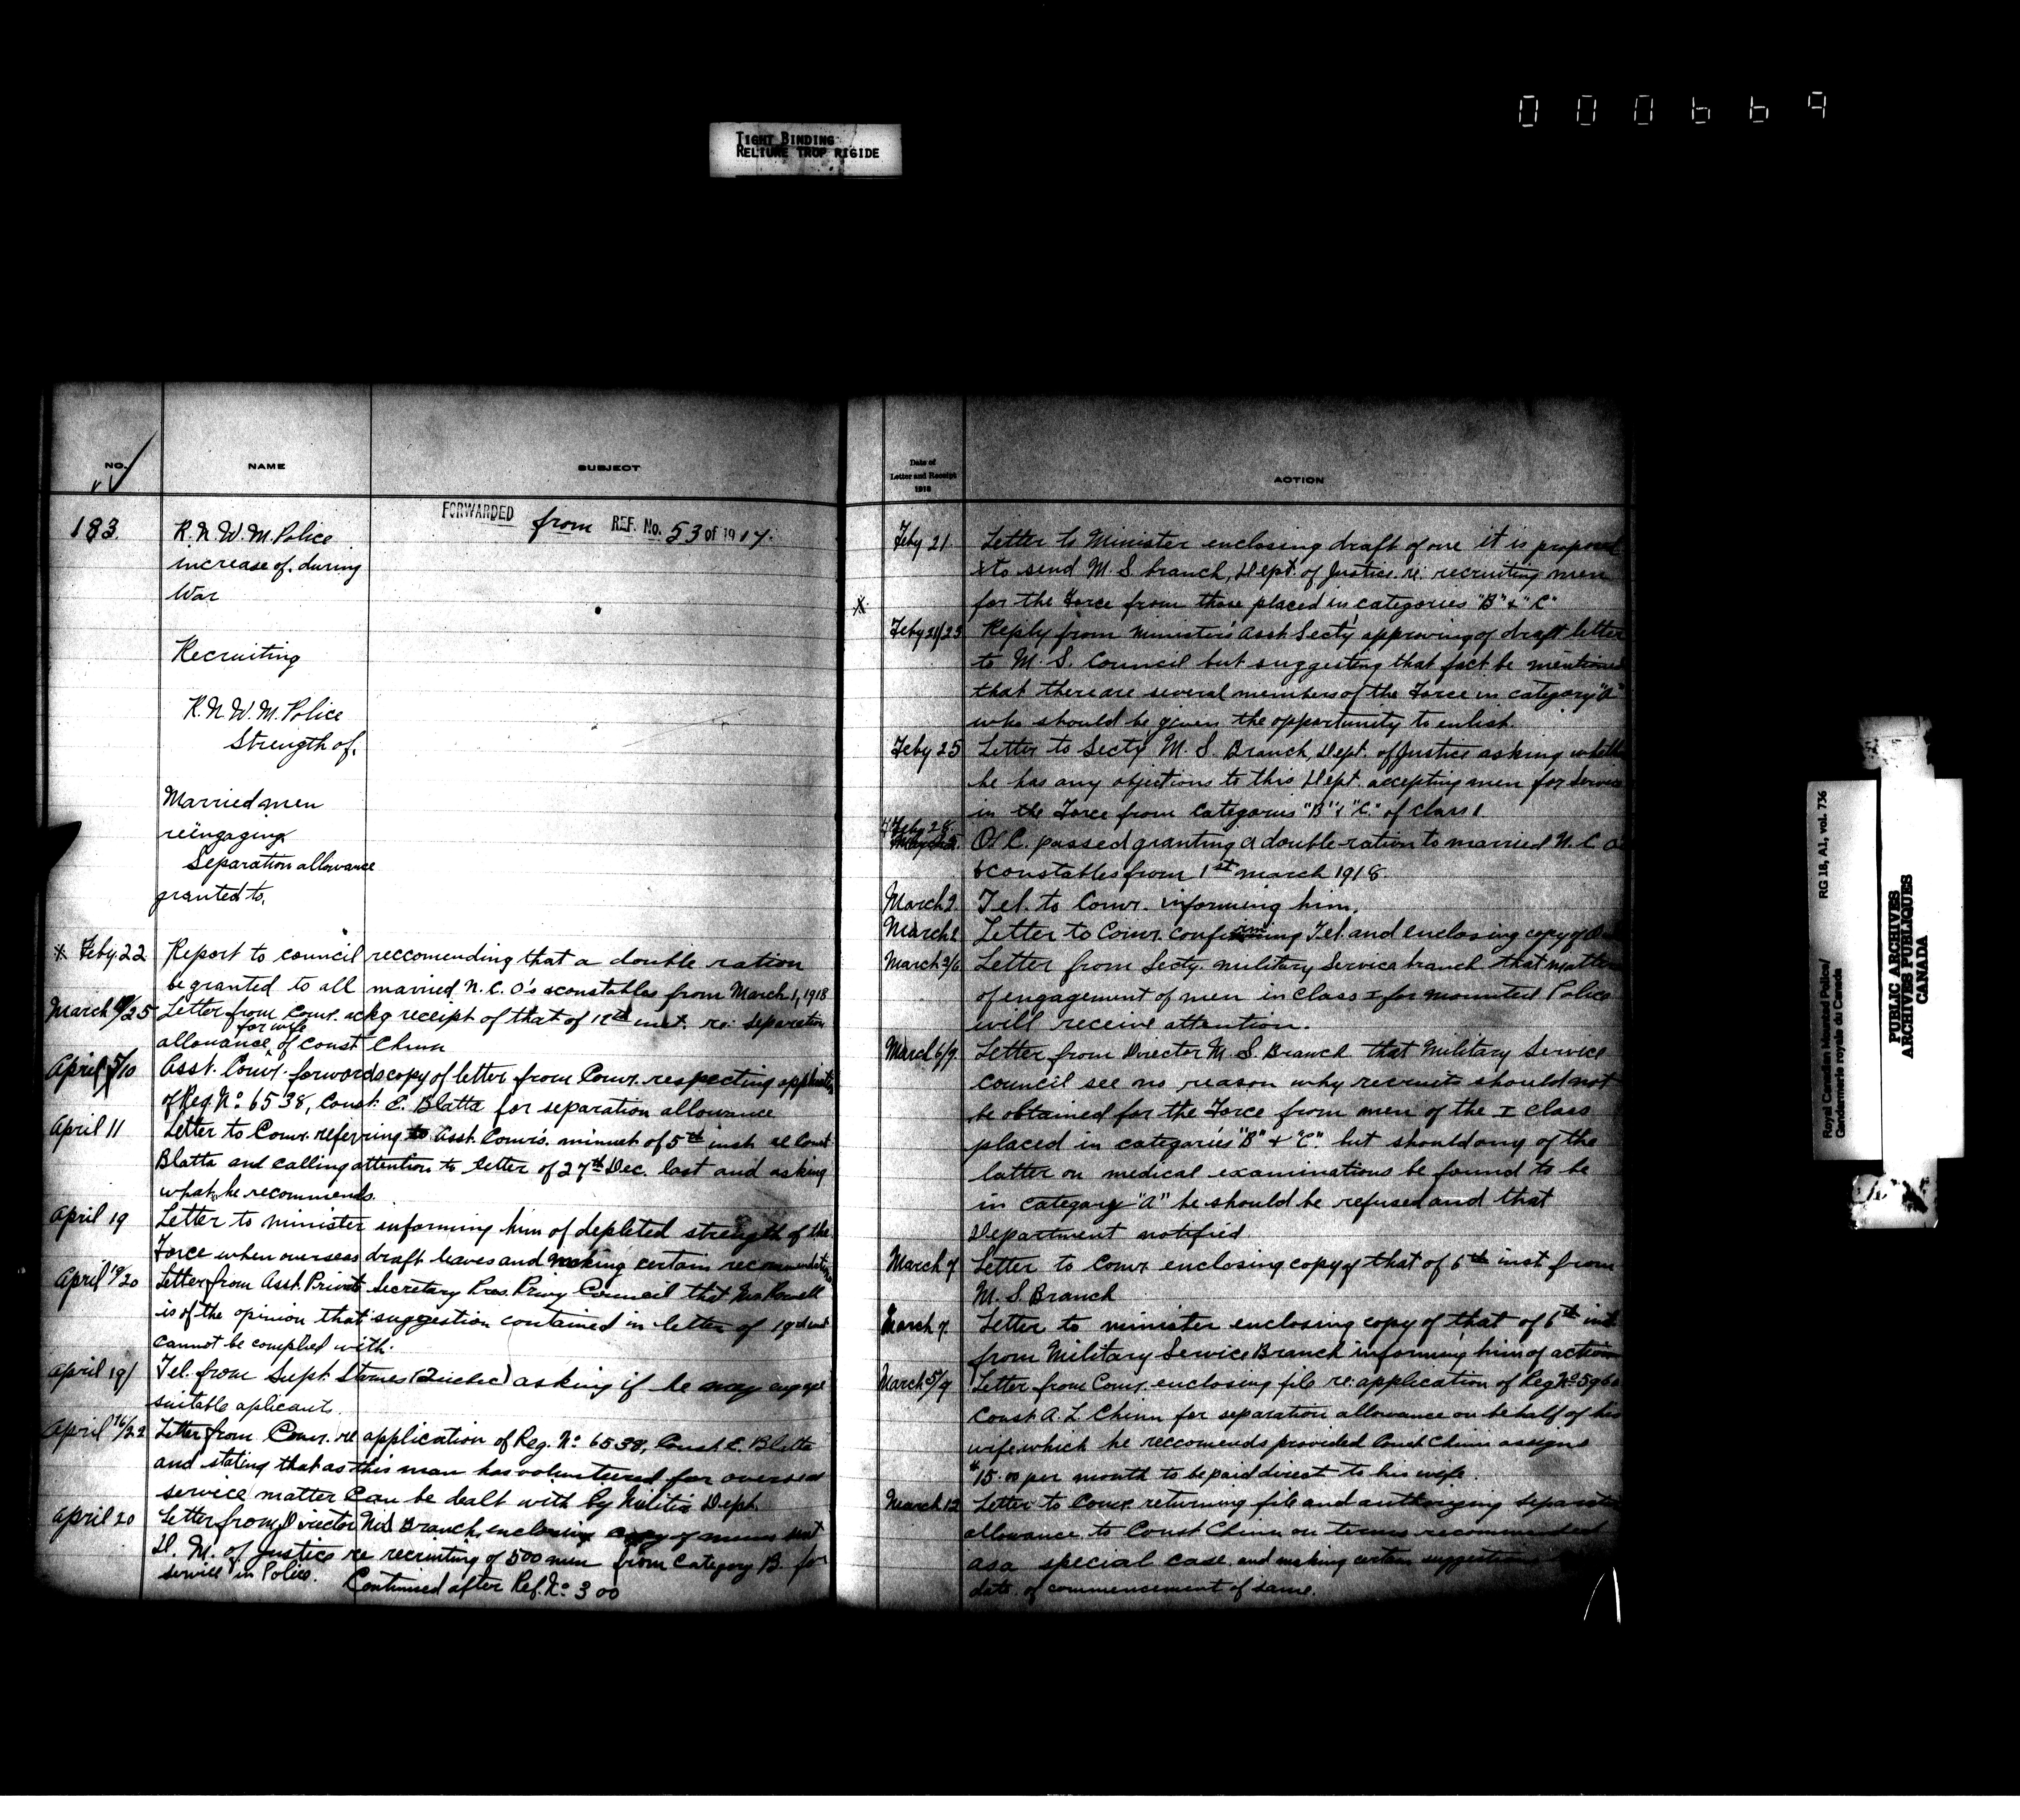 000669
TIGHT BINDING
RELIURE TROP RIGIDE
NO.
NAME
SUBJECT
FORWARDED from REF. No. 53 of 1917.
183.
R.N.W.M. Police
increase of, during
War
Recruiting
R.N.W.M. Police
Strength of,
Married men
reëngaging
Separation allowance
granted to,
* Feby 22 Report to council reccomending that a double ration
be granted to all married N.C.O's &constables from March 1, 1918
March /25 Letter from Comr. ackg receipt of that of 12th inst. re: separation
for wife
allowance of Const Chinn
April 5/10 Asst. Comr. forwards copy of letter from Comr. respecting application
of Reg. No 6538, Const. E. Blatta for separation allowance
April 11 Letter to Comr. referring to Asst. Comr's. minut of 5th inst re Const
Blatta and calling attention to letter of 27th Dec. last and asking
what he recommends.
April 19 Letter to minister informing him of depleted strength of the
Force when overseas draft leaves and making certain recommendations
April 19/20 Letter from Asst. Private Secretary Pres. Privy Council that Mr Rowell
is of the opinion that suggestion contained in letter of 19th inst
cannot be complied with.
April 19/ Tel. from Supt. Starnes (Quebec) asking if he may engage
suitable aplicants.
April 16/22 Letter from Comr. re application of Reg. No 6538, Const. E. Blatta
and stating that as this man has volunteered for overseas
service matter can be dealt with by Militia Dept.
April 20 Letter from Director M.S. Branch, enclosing copy of memo sent
D. M. of Justice re recruiting of 500 men from Category B for
service in Police. Continued after Ref. No 300
Date of
Letter and Receipt
1918
ACTION
Feby 21. Letter to Minister enclosing draft of one it is proposed
to send M.S. branch, Dept. of Justice. re: recruiting men
* for the Force from those placed in categories "B" & "C"
Feby 21/23 Reply from Minister's Asst Secty approving of draft letter
to M.S. Council but suggesting that fact be mentioned
that there are several members of the Force in category "A"
who should be given the opportunity to enlist.
Feby 25 Letter to Secty M.S. Branch, Dept. of Justice asking whether
he has any objections to this Dept. accepting men for service
in the Force from categories "B" & "C" of class 1.
Feby 28 O. C. passed granting a double ration to married N.C.O's
&constables from 1st march 1918.
March 2 Tel. to Comr. informing him.
March 2 Letter to Comr. confirming Tel. and enclosing copy of
March 2/6 Letter from Secty. military Service branch that matter
of engagement of men in class I for mounted Police
will receive attention.
March 6/7 Letter from Director M.S. Branch that Military Service
Council see no reason why recruits should not
be obtained for the Force from men of the I class
placed in categories "B" & "C." but should any of the
latter on medical examinations be found to be
in category "A" he should be refused and that
Department notified.
March 7 Letter to Comr enclosing copy of that of 6th inst from
M.S. Branch
March 7. Letter to minister enclosing copy of that of 6th inst
from Military Service Branch informing him of action
March 5/9 Letter from Comr. enclosing file re: application of Reg No 5960
Const. A. L. Chinn for separation allowance on behalf of his
wife which he reccomends provided Const Chinn assigns
$15.00 per month to be paid direct to his wife.
March 12 Letter to Comr. returning file and authorizing separation
allowance to Const Chinn on terms recommended
as a special case. and making certain suggestions
date of commencement of same.
Royal Canadian Mounted Police/
Gendarmerie royale du Canada
RG 18, A1, vol. 736
PUBLIC ARCHIVES
ARCHIVES PUBLIQUES
CANADA